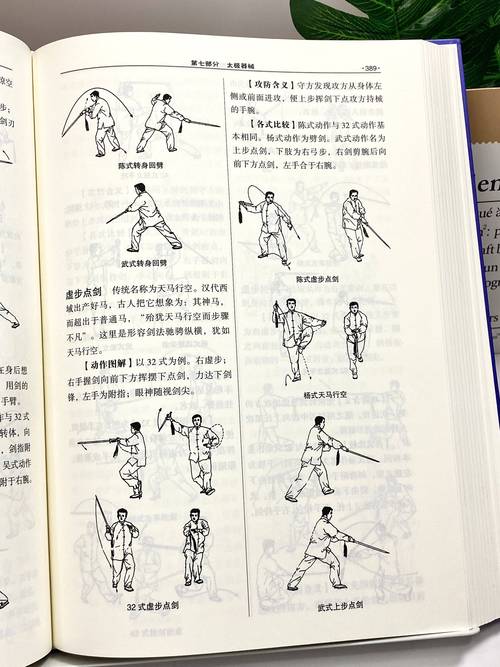 第七部分 太极器械
·389·
陈式转身回劈
武式转身回劈
虚步点剑 传统名称为天马行空。汉代西
域出产好马，古人把它想象为；其神马，
而超出于普通马，“殆犹天马行空而步骤
不凡”。这里是形容剑法驰骋纵横，犹如
天马行空。
【动作图解】以32式为例。右虚步；
右手握剑向前下方挥摆下点剑，力达下剑
锋，左手为附指；眼神随视剑尖。
32式虚步点剑
【攻防含义】守方发现攻方从身体左
侧或前面进攻，便上步挥剑下点攻方持械
的手腕。
【各式比较】陈式动作与32式动作基
本相同。杨式动作为劈剑。武式动作名为
上步点剑，下肢为右弓步，右剑剪腕后向
前下方点剑，左手合于右腕。
陈式虚步点剑
杨式天马行空
武式上步点剑
步；
剑刃
在身后想
用剑的
手臂。
作与32式
转体，向
，剑指附
吴式动作
附于右腕。